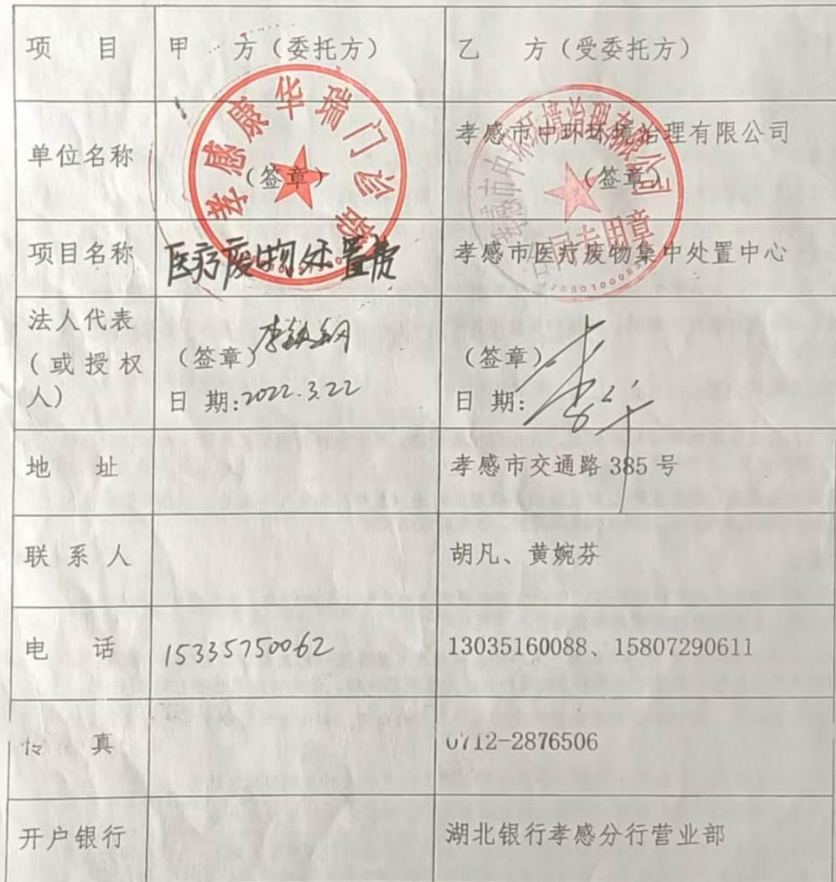 项 目 甲 方（委托方） 乙 方（受委托方）
孝感康华瑞门诊部
单位名称 （签章） 孝感市中环环境治理有限公司
（签章）
孝感市中环环境治理有限公司
合同专用章
项目名称 医疗废物处置费 孝感市医疗废物集中处置中心
法人代表
（或授权
人）
（签章）
日 期：2022.3.22
（签章）
日 期：
地 址 孝感市交通路 385 号
联 系 人 胡凡、黄婉芬
电 话 15335750062 13035160088、15807290611
传 真 0712-2876506
开户银行 湖北银行孝感分行营业部